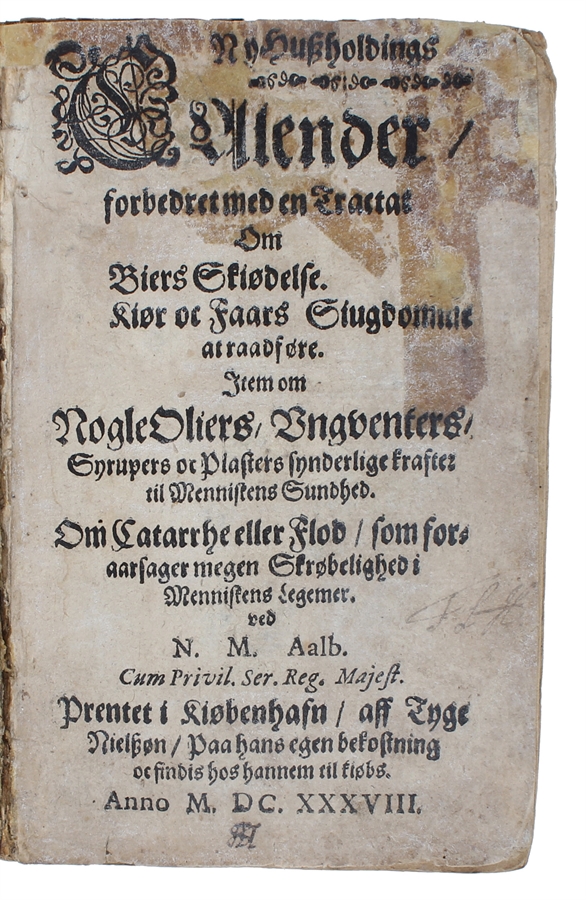 Ny Hußholdings
CAlender /
forbedret med en Tractat
Om
Biers Skiødelse.
Kiør oc Faars Siugdomme
at raadføre.
Item om
Nogle Oliers / Vngventers /
Syrupers oc Plasters synderlige krafter
til Menniskens Sundhed.
Om Catarrhe eller Flod / som for-
aarsager megen Skrøbelighed i
Menniskens Legemer.
ved
N. M. Aalb.
Cum Privil. Ser. Reg. Majest.
Prentet i Kiøbenhafn / aff Tyge
Nielßøn / Paa hans egen bekostning
oc findis hos hannem til kiøbs.
Anno M. DC. XXXVIII.